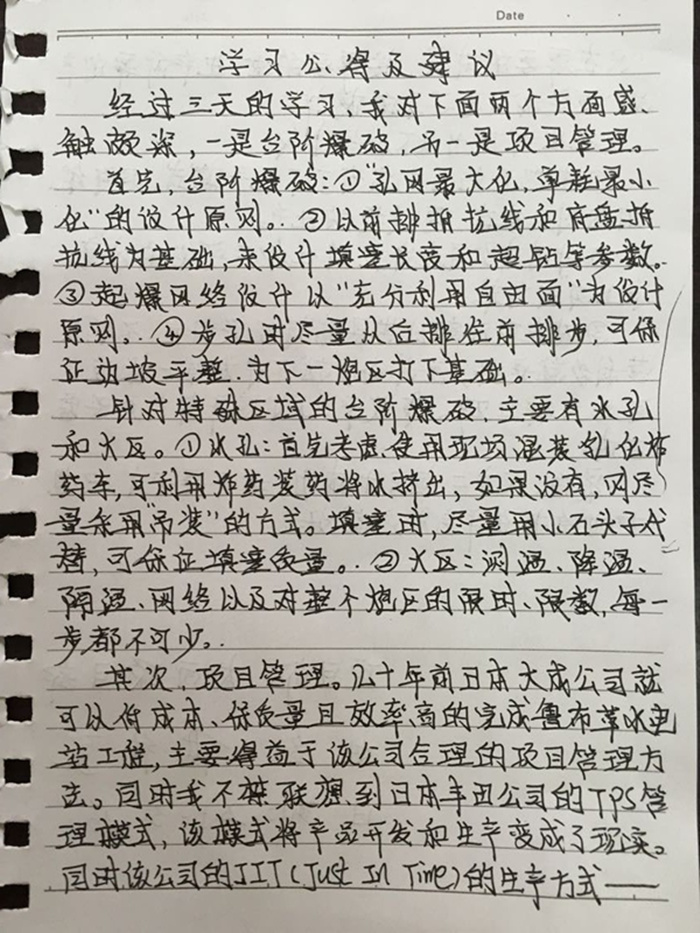 Date
学习心得及建议
经过三天的学习、我对下面两个方面感
触颇深，一是台阶爆破，另一是项目管理。
首先，台阶爆破：①“孔网最大化，单耗最小
化”的设计原则。②以前排抵抗线和底盘抵
抗线为基础，来设计填塞长度和超钻等参数。
③起爆网络设计以“充分利用自由面”为设计
原则。④步孔时尽量从后排往前排步，可保
证边坡平整、为下一炮区打下基础。
针对特殊区域的台阶爆破、主要有水孔
和火区。①水孔：首先考虑使用现场混装乳化炸
药车，可利用炸药装药将水挤出，如果没有，则尽
量采用“吊装”的方式。填塞时，尽量用小石头子代
替，可保证填塞质量。②火区：测温、降温、
隔温、网络以及对整个炮区的限时、限数，每一
步都不可少。
其次，项目管理。几十年前日本大成公司就
可以低成本、保质量且效率高的完成鲁布革水电
站工程，主要得益于该公司合理的项目管理方
法。同时我不禁联想到日本丰田公司的TPS管
理模式，该模式将产品开发和生产变成了现实。
同时该公司的JIT(Just In Time)的生产方式——